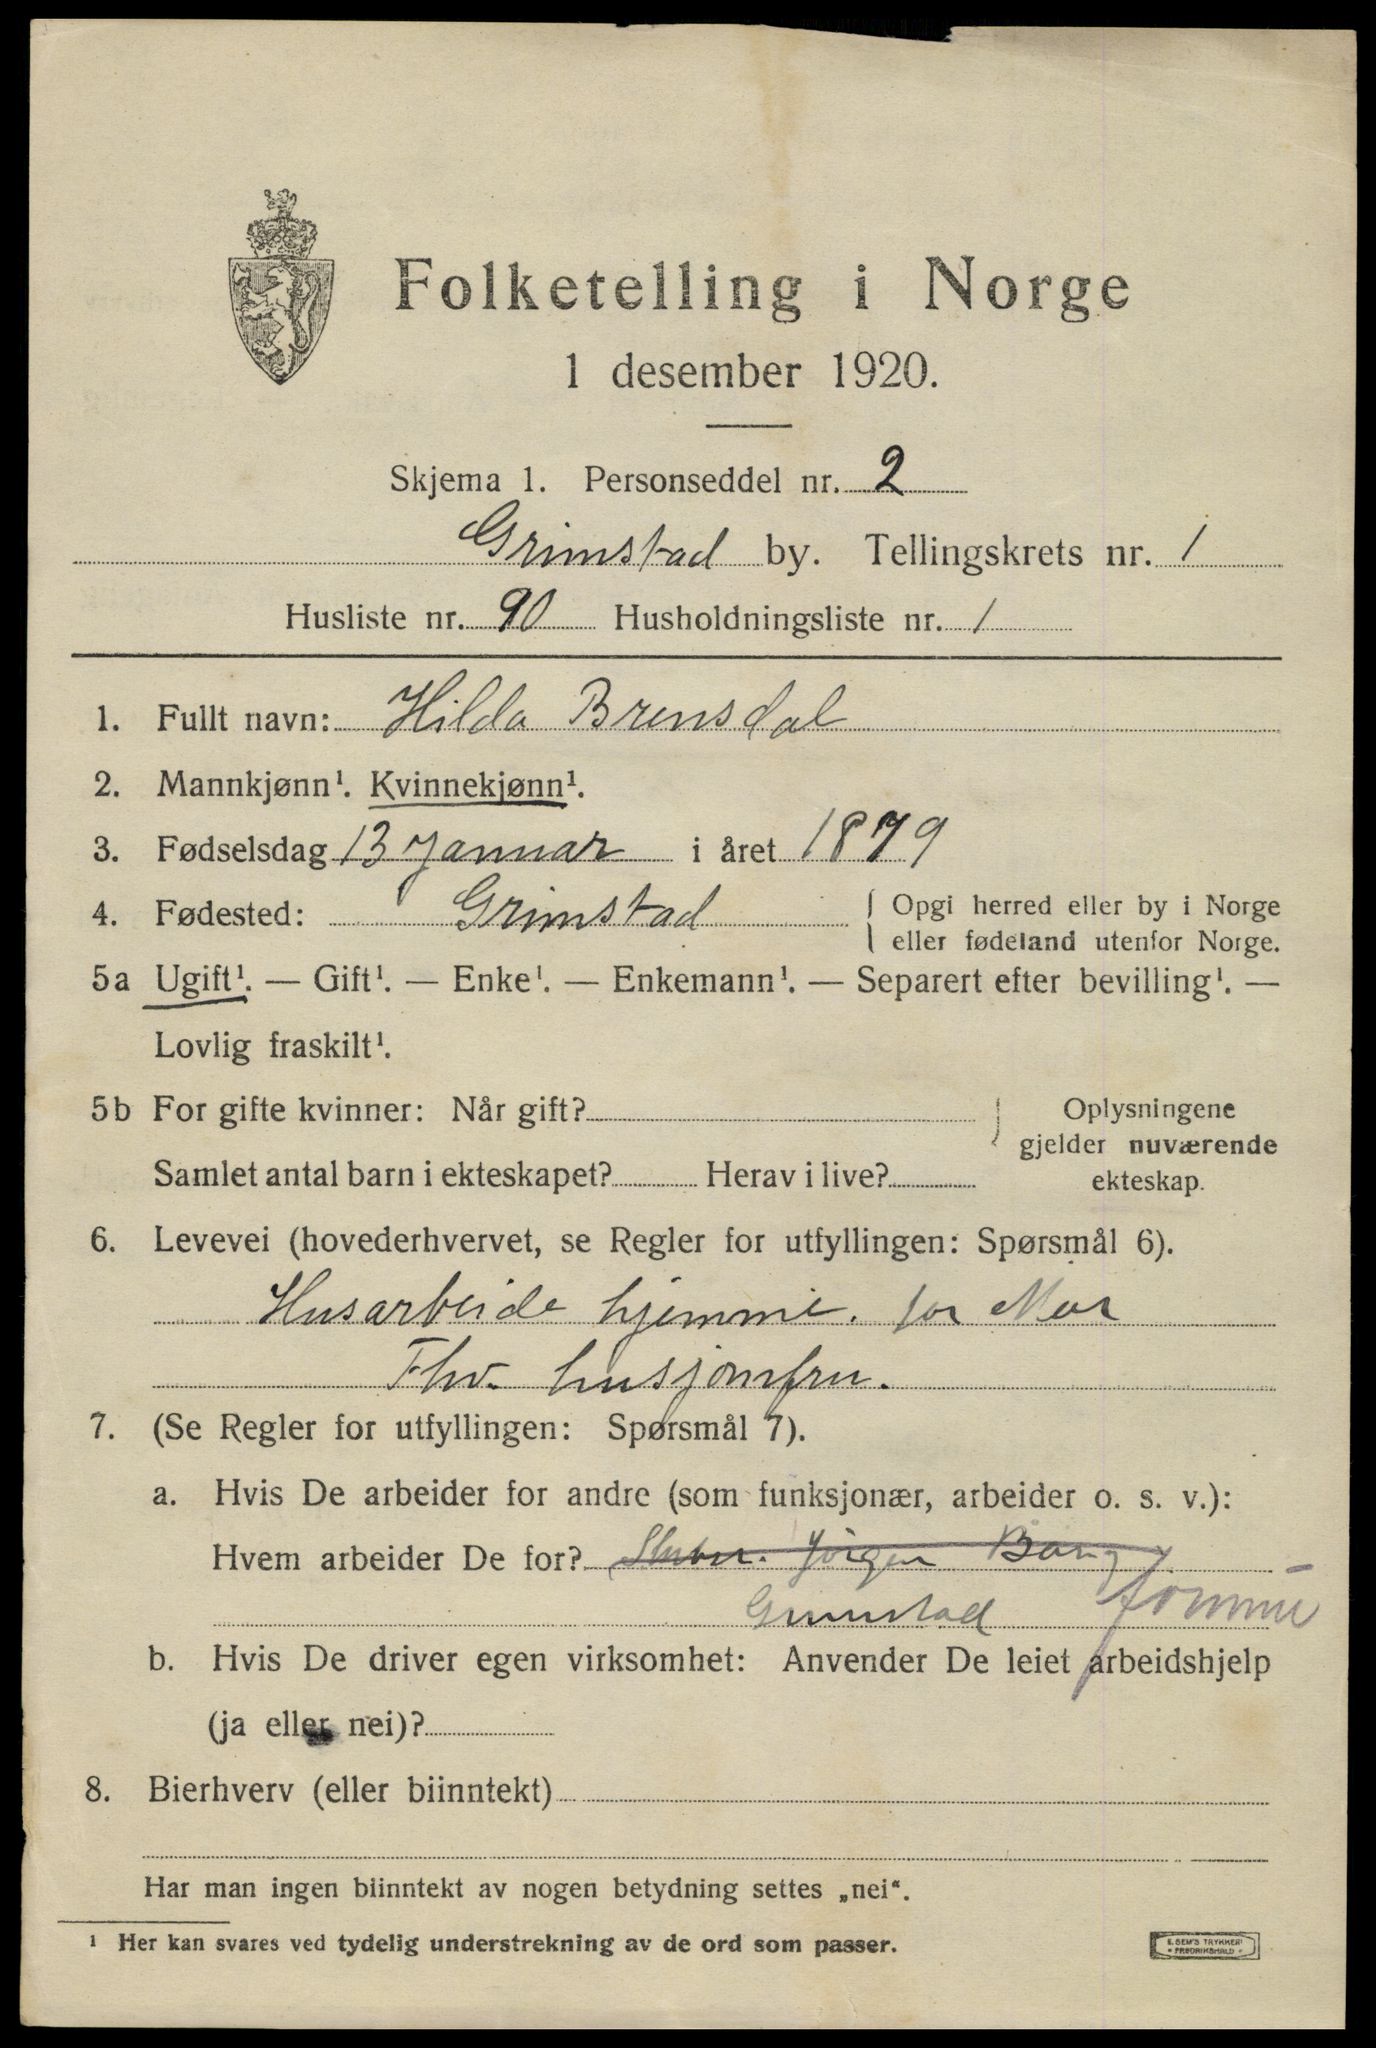 Folketelling i Norge
1 desember 1920.
Skjema 1. Personseddel nr. 2
Grimstad by. Tellingskrets nr. 1
Husliste nr. 90 Husholdningsliste nr. 1
1. Fullt navn: Hilda Brensdal
2. Mannkjønn¹. Kvinnekjønn¹.
3. Fødselsdag 13 januar i året 1879
4. Fødested: Grimstad { Opgi herred eller by i Norge
eller fødeland utenfor Norge.
5a Ugift¹. — Gift¹. — Enke¹. — Enkemann¹. — Separert efter bevilling¹. —
Lovlig fraskilt¹.
5b For gifte kvinner: Når gift? } Oplysningene
gjelder nuværende
Samlet antal barn i ekteskapet? Herav i live? ekteskap.
6. Levevei (hovederhvervet, se Regler for utfyllingen: Spørsmål 6).
Husarbeide hjemme. for Mor
Fhv. husjomfru.
7. (Se Regler for utfyllingen: Spørsmål 7).
a. Hvis De arbeider for andre (som funksjonær, arbeider o. s. v.):
Hvem arbeider De for? Jørgen Bang
Grimstad
b. Hvis De driver egen virksomhet: Anvender De leiet arbeidshjelp
(ja eller nei)?
8. Bierhverv (eller biinntekt)
Har man ingen biinntekt av nogen betydning settes „nei“.
¹ Her kan svares ved tydelig understrekning av de ord som passer.
E. SEM'S TRYKKERI
* FREDRIKSHALD *